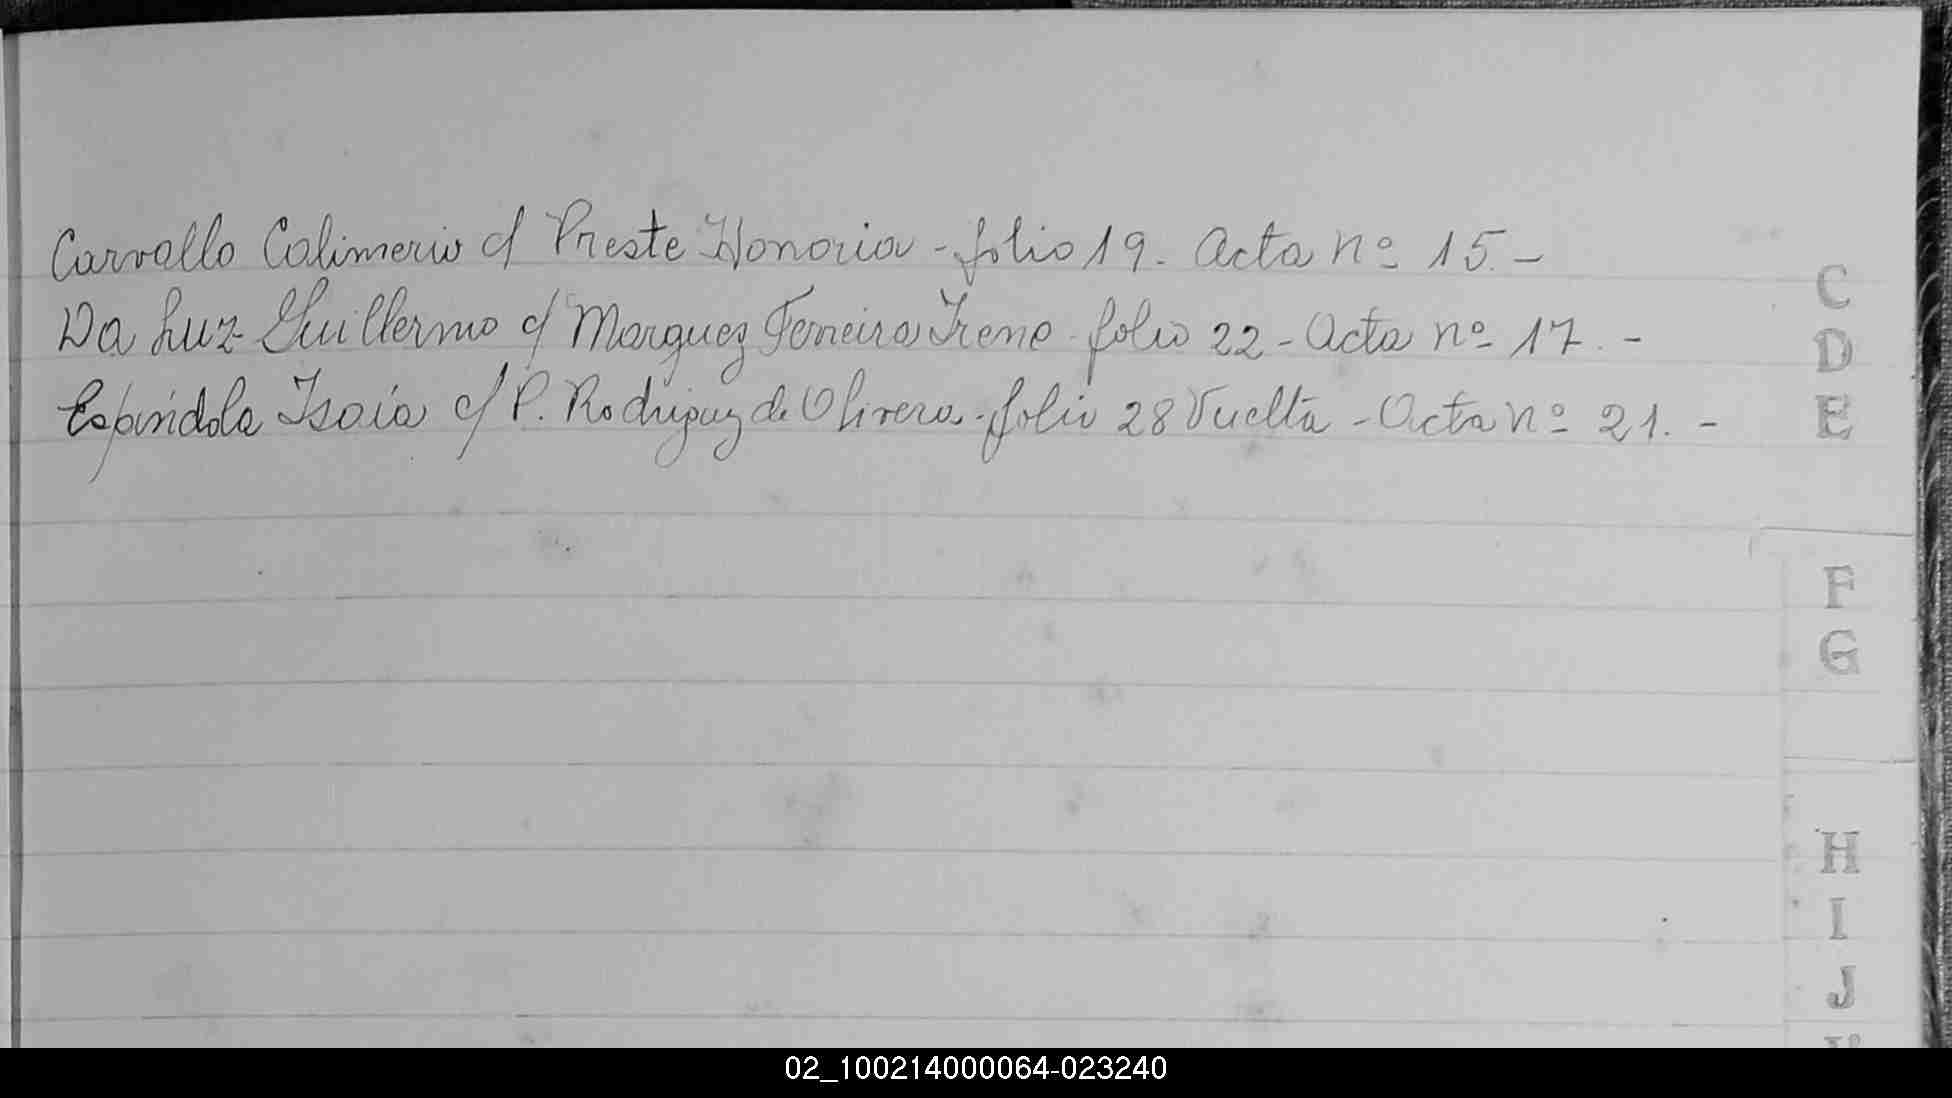 Carvallo Calimerio c/ Preste Honoria - folio 19. Acta nº 15.-
Da Luz Guillermo c/ Marquez Ferreira Irene - folio 22 - Acta nº 17. -
Espindola Isaia c/ P. Rodriguez de Olivera - folio 28 Vuelta - Acta nº 21. -
C
D
E
F
G
H
I
J
02_100214000064-023240